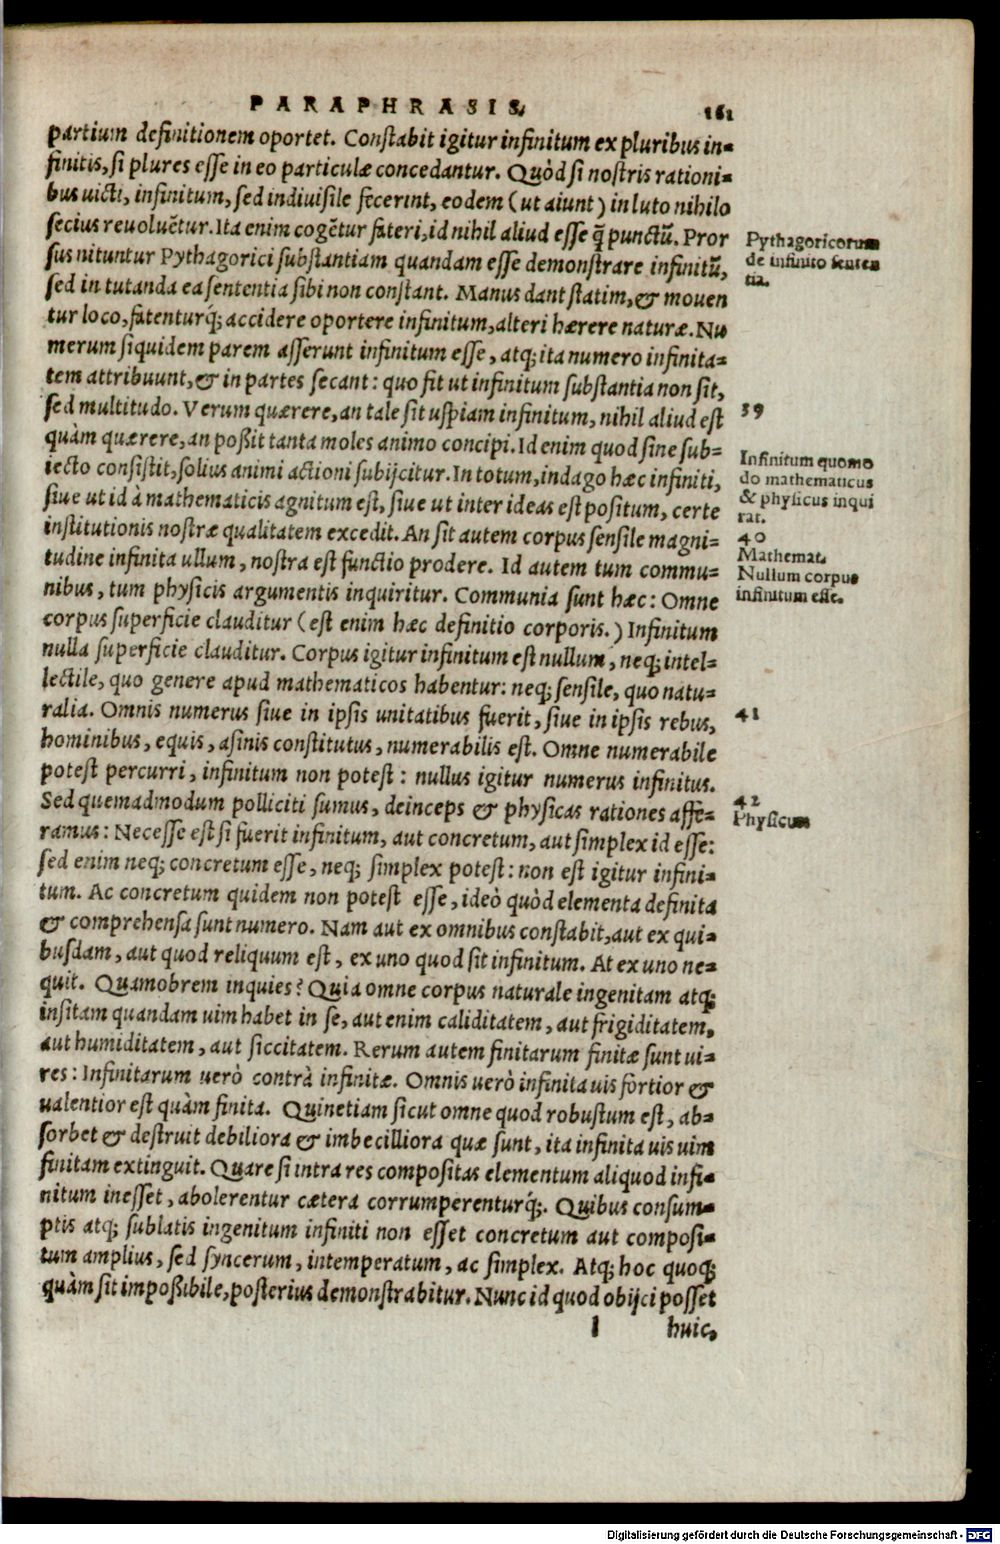 PARAPHRASIS. 161
partium definitionem oportet. Constabit igitur infinitum ex pluribus in-
finitis, si plures esse in eo particulæ concedantur. Quòd si nostris rationi-
bus uicti, infinitum, sed indiuisile fecerint, eodem (ut aiunt) in luto nihilo
secius reuoluẽtur. Ita enim cogẽtur fateri, id nihil aliud esse q̃ punctũ. Pror
sus nituntur Pythagorici substantiam quandam esse demonstrare infinitũ,
sed in tutanda ea sententia sibi non constant. Manus dant statim, & mouen
tur loco, fatenturq́; accidere oportere infinitum, alteri hærere naturæ. Nu
merum siquidem parem asserunt infinitum esse, atq; ita numero infinita-
tem attribuunt, & in partes secant: quo fit ut infinitum substantia non sit,
sed multitudo. Verum quærere, an tale sit uspiam infinitum, nihil aliud est
quàm quærere, an poßit tanta moles animo concipi. Id enim quod sine sub-
iecto consistit, solius animi actioni subijcitur. In totum, indago hæc infiniti,
siue ut id à mathematicis agnitum est, siue ut inter ideas est positum, certe
institutionis nostræ qualitatem excedit. An sit autem corpus sensile magni-
tudine infinita ullum, nostra est functio prodere. Id autem tum commu-
nibus, tum physicis argumentis inquiritur. Communia sunt hæc: Omne
corpus superficie clauditur (est enim hæc definitio corporis.) Infinitum
nulla superficie clauditur. Corpus igitur infinitum est nullum, neq; intel-
lectile, quo genere apud mathematicos habentur: neq; sensile, quo natu-
ralia. Omnis numerus siue in ipsis unitatibus fuerit, siue in ipsis rebus,
hominibus, equis, asinis constitutus, numerabilis est. Omne numerabile
potest percurri, infinitum non potest: nullus igitur numerus infinitus.
Sed quemadmodum polliciti sumus, deinceps & physicas rationes affe-
ramus: Necesse est si fuerit infinitum, aut concretum, aut simplex id esse:
sed enim neq; concretum esse, neq; simplex potest: non est igitur infini-
tum. Ac concretum quidem non potest esse, ideò quòd elementa definita
& comprehensa sunt numero. Nam aut ex omnibus constabit, aut ex qui-
busdam, aut quod reliquum est, ex uno quod sit infinitum. At ex uno ne-
quit. Quamobrem inquies? Quia omne corpus naturale ingenitam atq;
insitam quandam uim habet in se, aut enim caliditatem, aut frigiditatem,
aut humiditatem, aut siccitatem. Rerum autem finitarum finitæ sunt ui-
res: Infinitarum uerò contrà infinitæ. Omnis uerò infinita uis fortior &
ualentior est quàm finita. Quinetiam sicut omne quod robustum est, ab-
sorbet & destruit debiliora & imbecilliora quæ sunt, ita infinita uis uim
finitam extinguit. Quare si intra res compositas elementum aliquod infi-
nitum inesset, abolerentur cætera corrumperenturq́;. Quibus consum-
ptis atq; sublatis ingenitum infiniti non esset concretum aut composi-
tum amplius, sed syncerum, intemperatum, ac simplex. Atq; hoc quoq;
quàm sit impoßibile, posterius demonstrabitur. Nunc id quod obijci posset
l huic,
Pythagoricorum
de infinito senten
tia.
39
Infinitum quomo
do mathematicus
& physicus inqui
rat.
40
Mathemat.
Nullum corpus
infinitum esse.
41
42
Physicum
Digitalisierung gefördert durch die Deutsche Forschungsgemeinschaft - DFG